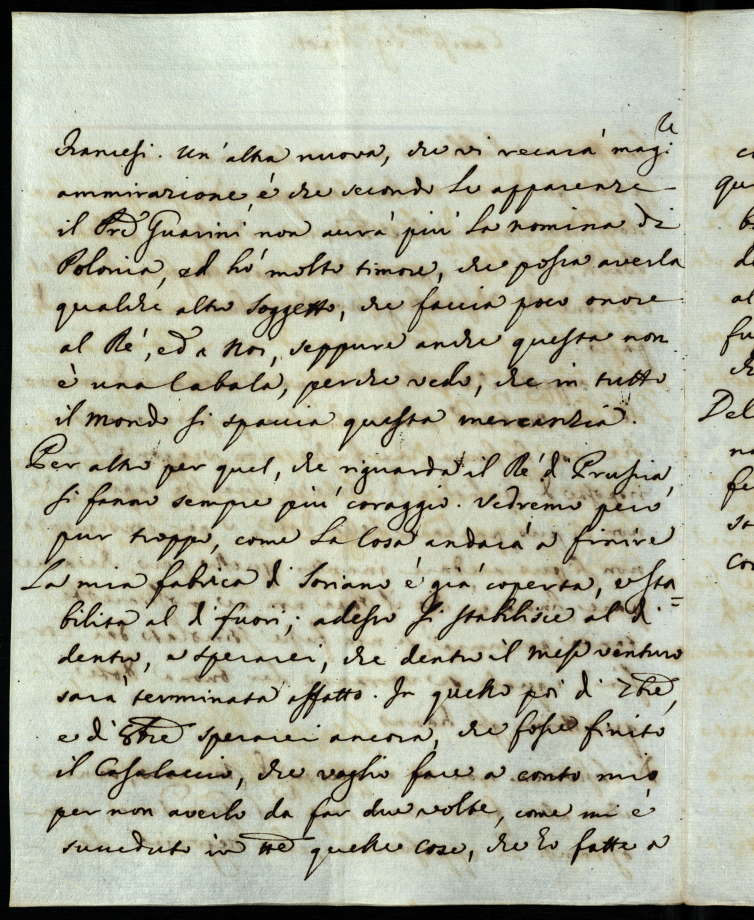 Francesi. Un'altra nuova, che vi recarà magi
re
ammirazione è che secondo le apparenze
il Pre Guarini non aurà più la nomina di
Polonia, ed hò molto timore, che possa averla
qualche altro soggetto, che faccia poco onore
al Rè, ed a Noi, seppure anche questa non
è una Cabala, perche vedo, che in tutto
il mondo si spaccia questa mercanzia.
Per altro per quel, che riguarda il Rè di Prussia
si fanno sempre più coraggio. Vedremo però
pur troppo, come la Cosa andarà a finire
La mia fabrica di Soriano è già coperta, e sta=
bilita al di fuori; adesso si stabilisce al di
dentro, e sperarei, che dentro il mese venturo
sarà terminata affatto. In quello poi di 7bre,
e di 8bre sperarei ancora, che fosse finito
il Casalaccio, che voglio fare a conto mio
per non averlo da far due volte, come mi è
succeduto in tte quelle cose, che hò fatte a